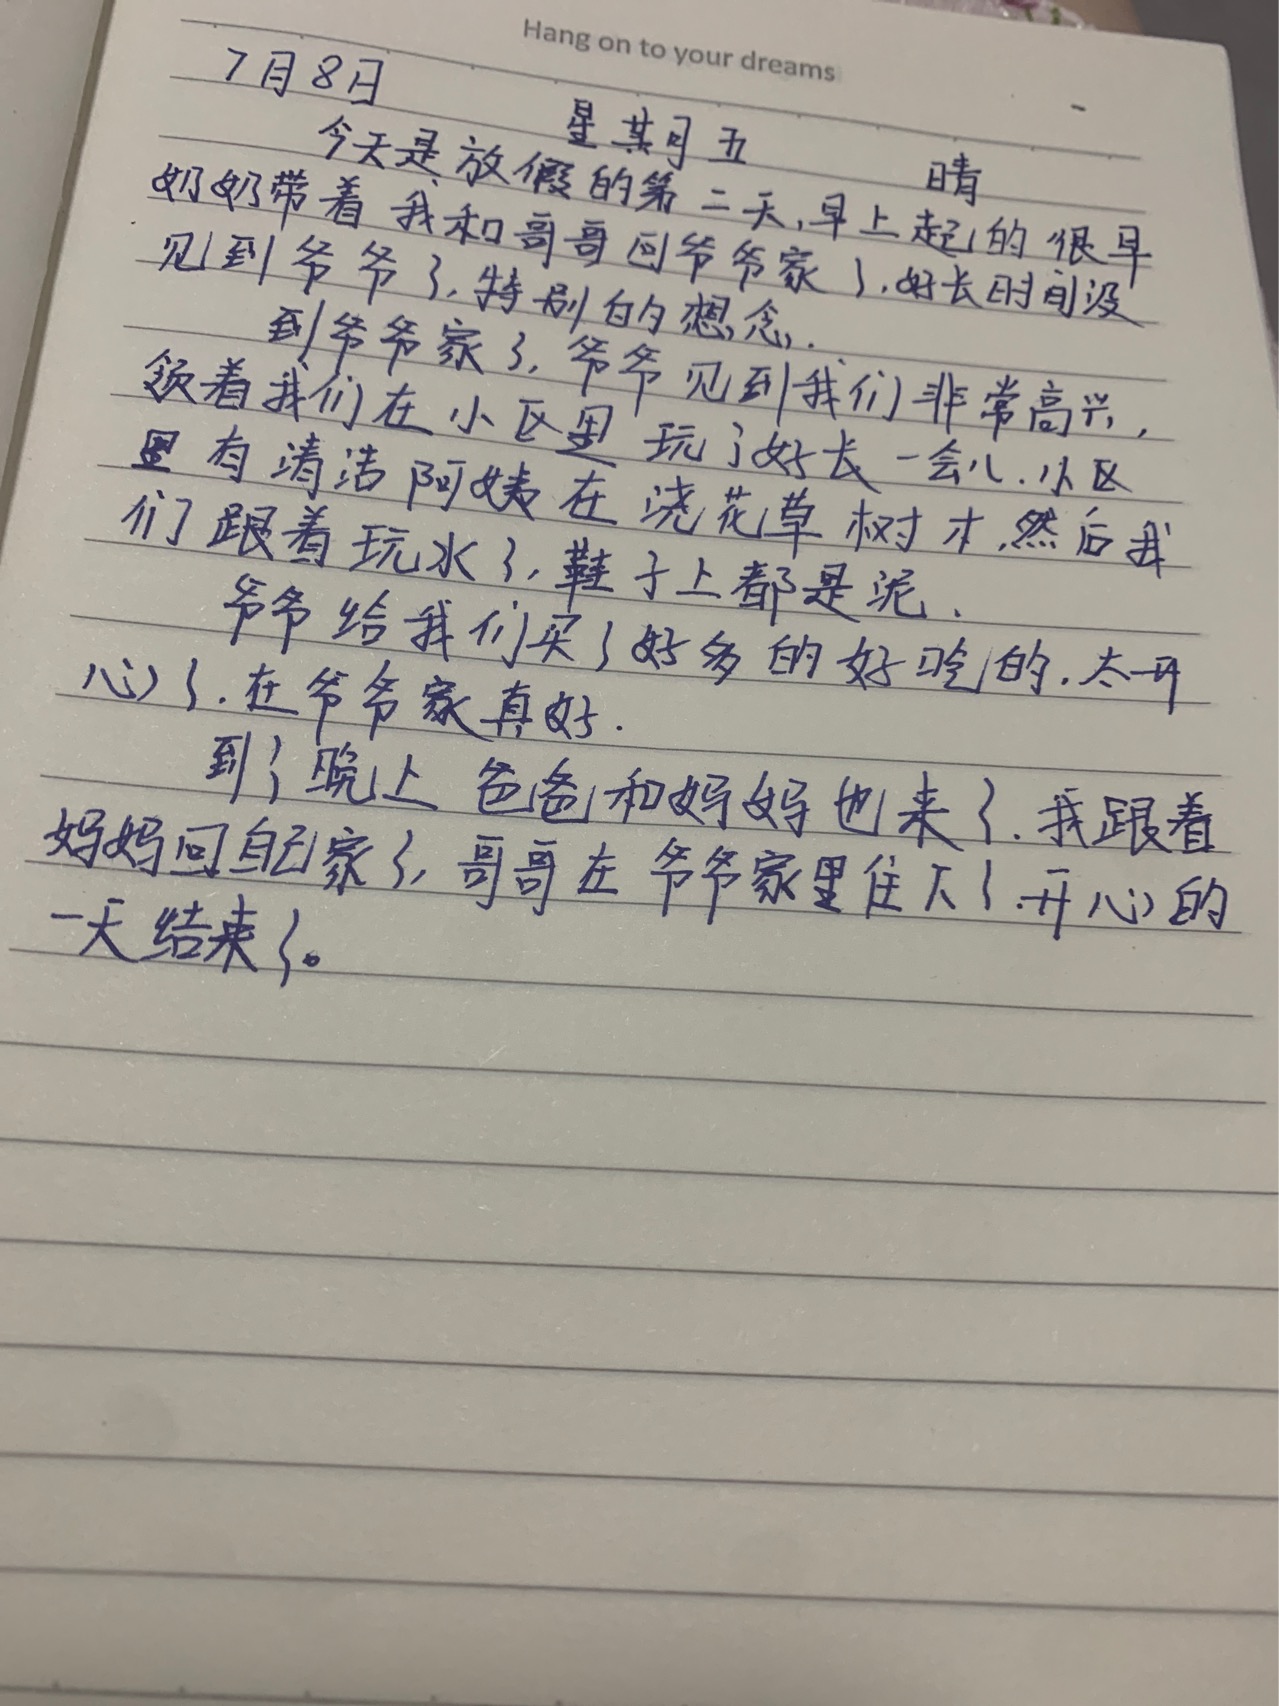 Hang on to your dreams
7月8日 星期五 晴
今天是放假的第二天,早上起的很早
奶奶带着我和哥哥回爷爷家了.好长时间没
见到爷爷了.特别的想念.
到爷爷家了,爷爷见到我们非常高兴,
领着我们在小区里玩了好长一会儿.小区
里有清洁阿姨在浇花草树木.然后我
们跟着玩水了,鞋子上都是泥.
爷爷给我们买了好多的好吃的.太开
心了.在爷爷家真好.
到了晚上 爸爸和妈妈也来了.我跟着
妈妈回自己家了,哥哥在爷爷家里住下了.开心的
一天结束了。